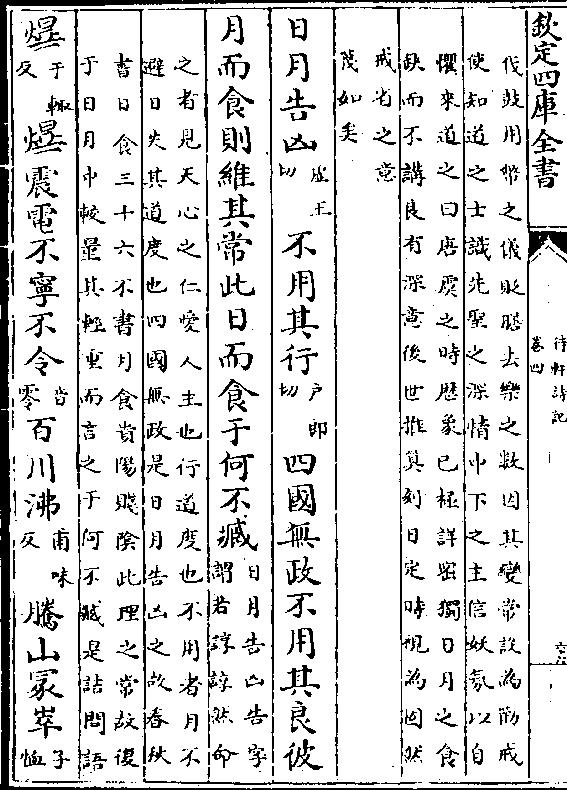 欽定四庫全書
待軒詩記
卷四
伐鼓用幣之儀貶膳去樂之數因其變常設為勸戒
使知道之士識先聖之深情中下之主信妖氛以自
懼來道之曰唐虞之時歷象已極詳密獨日月之食
缺而不講良有深意後世推算刻日定時視為固然
戒省之意
蔑如矣
日月告凶居王切不用其行戶郎切四國無政不用其良彼
月而食則維其常此日而食于何不臧日月告凶告字謂若諄諄然命
之者見天心之仁愛人主也行道度也不用者月不
避日失其道度也四國無政是日月告凶之故春秋
書日食三十六不書月食貴陽賤陰此理之常故復
于日月中較量其輕重而言之于何不臧是詰問語
爗于輒反爗震電不寧不令皆零百川沸甫味反騰山冢崒子恤